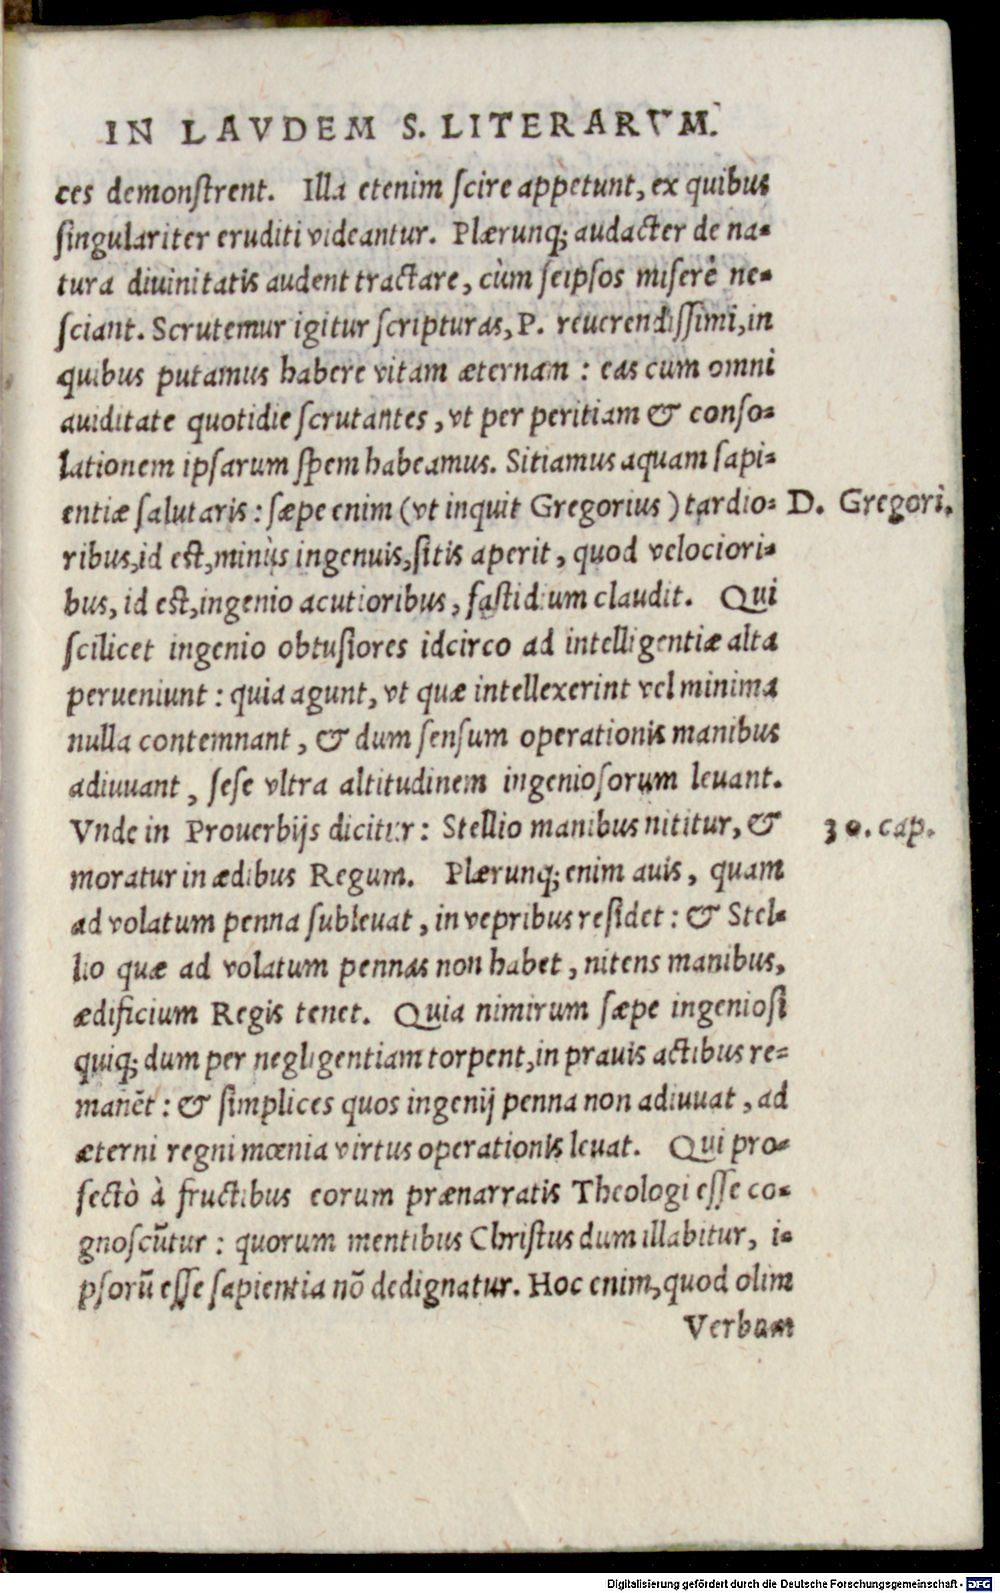 IN LAVDEM S. LITERARVM.
ces demonſtrent. Illa etenim ſcire appetunt, ex quibus
ſingulariter eruditi videantur. Plærunq; audacter de na-
tura diuinitatis audent tractare, cùm ſeipſos miſerè ne-
ſciant. Scrutemur igitur ſcripturas, P. reuerendiſſimi, in
quibus putamus habere vitam æternam : eas cum omni
auiditate quotidie ſcrutantes, vt per peritiam & conſo-
lationem ipſarum ſpem habeamus. Sitiamus aquam ſapi-
entiæ ſalutaris : ſæpe enim (vt inquit Gregorius) tardio- D. Gregori.
ribus, id eſt, minùs ingenuis, ſitis aperit, quod velociori-
bus, id eſt, ingenio acutioribus, faſtidium claudit. Qui
ſcilicet ingenio obtuſiores idcirco ad intelligentiæ alta
perueniunt : quia agunt, vt quæ intellexerint vel minima
nulla contemnant, & dum ſenſum operationis manibus
adiuuant, ſeſe vltra altitudinem ingenioſorum leuant.
Vnde in Prouerbijs dicitur : Stellio manibus nititur, & 30. cap.
moratur in ædibus Regum. Plærunq; enim auis, quam
ad volatum penna ſubleuat, in vepribus reſidet : & Stel-
lio quæ ad volatum pennas non habet, nitens manibus,
ædificium Regis tenet. Quia nimirum ſæpe ingenioſi
quiq; dum per negligentiam torpent, in prauis actibus re-
manẽt : & ſimplices quos ingenij penna non adiuuat, ad
æterni regni mœnia virtus operationis leuat. Qui pro-
fectò à fructibus eorum prænarratis Theologi eſſe co-
gnoſcũtur : quorum mentibus Chriſtus dum illabitur, i-
pſorũ eſſe ſapientia nõ dedignatur. Hoc enim, quod olim
Verbum
Digitalisierung gefördert durch die Deutsche Forschungsgemeinschaft - DFG